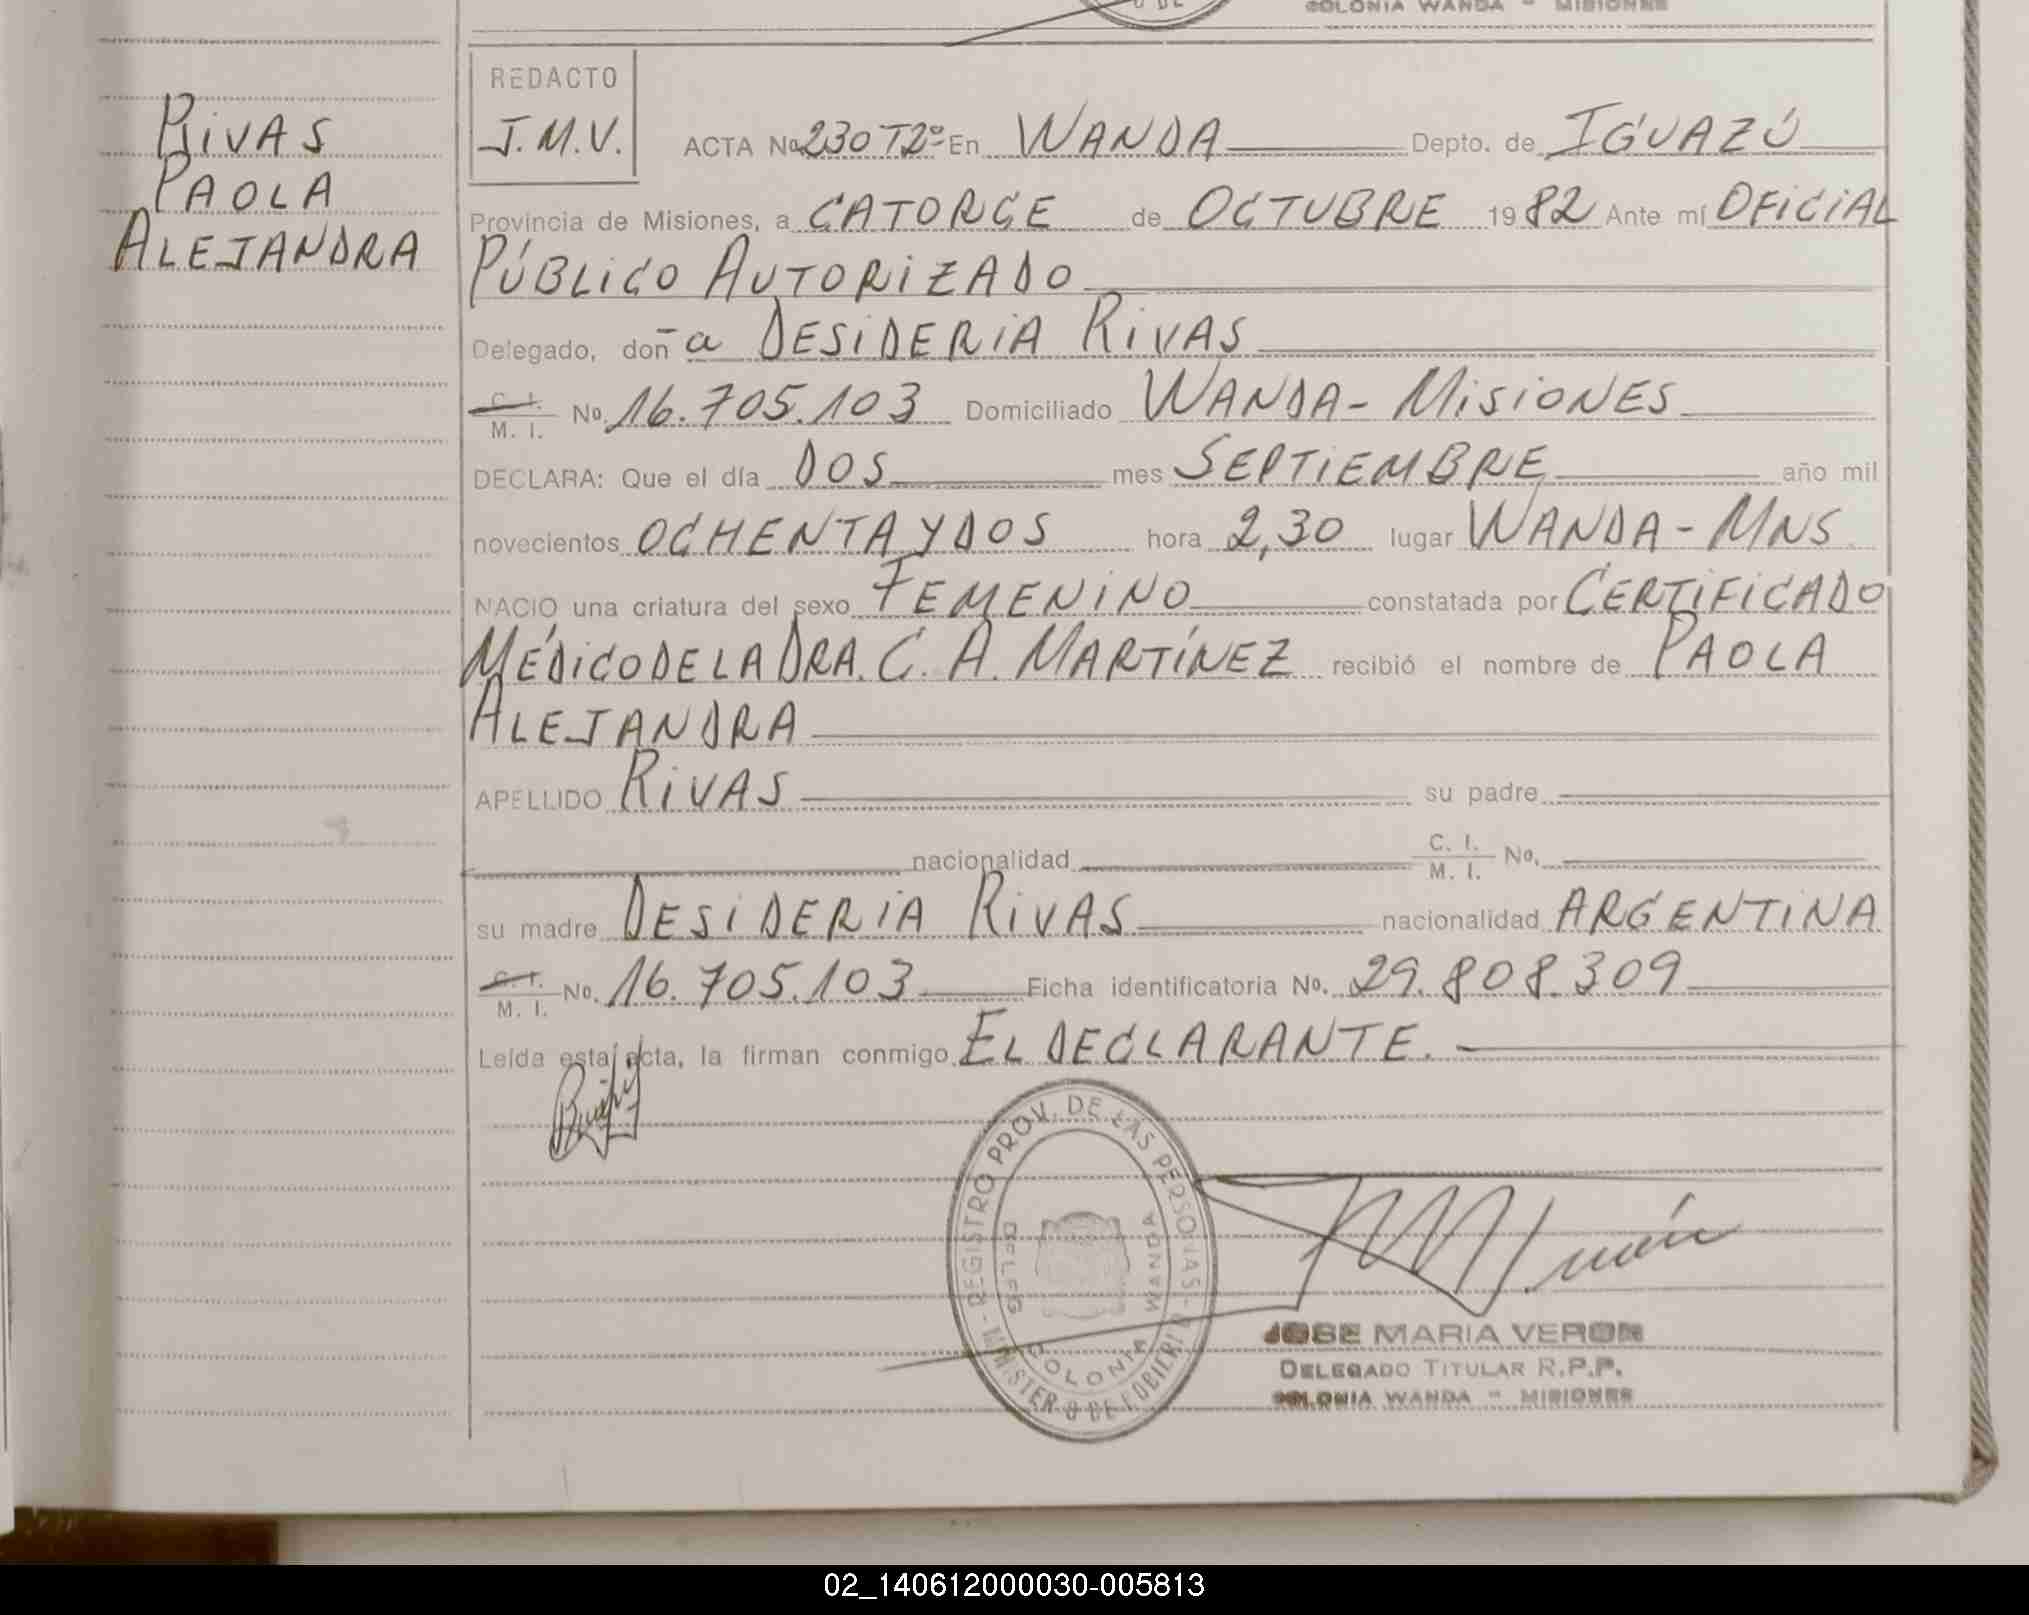 COLONIA WANDA - MISIONES
RIVAS
PAOLA
ALEJANDRA
REDACTO
J.M.V.
ACTA No. 230 T2º En WANDA Depto. de IGUAZÚ
Provincia de Misiones, a CATORCE de OCTUBRE 1982 Ante mí OFICIAL
PÚBLICO AUTORIZADO
Delegado, doña DESIDERIA RIVAS
C. I. M. I. No. 16.705.103 Domiciliado WANDA - MISIONES
DECLARA: Que el día DOS mes SEPTIEMBRE año mil
novecientos OCHENTA Y DOS hora 2,30 lugar WANDA - MNS
NACIO una criatura del sexo FEMENINO constatada por CERTIFICADO
MÉDICO DE LA DRA. C. A. MARTÍNEZ recibió el nombre de PAOLA
ALEJANDRA
APELLIDO RIVAS su padre
nacionalidad C. I. M. I. No.
su madre DESIDERIA RIVAS nacionalidad ARGENTINA
C. I. M. I. No. 16.705.103 Ficha identificatoria No. 29.808.309
Leída esta acta, la firman conmigo EL DECLARANTE.
REGISTRO PROV. DE LAS PERSONAS - MINISTERIO DE GOBIERNO
DELEG. COLONIA WANDA
JOSE MARIA VERON
DELEGADO TITULAR R.P.P.
COLONIA WANDA - MISIONES
02_140612000030-005813